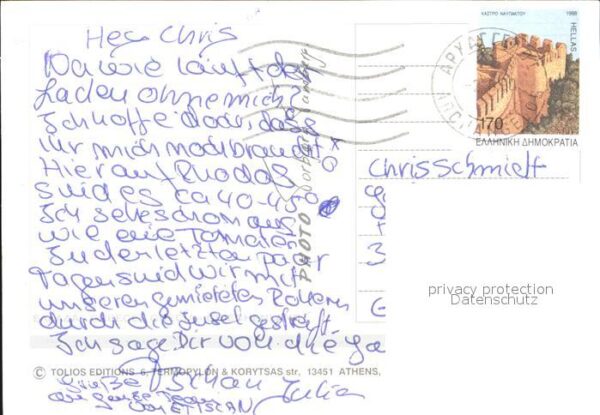 Hey Chris
Na wie läuft der
Laden ohne mich?
Ich hoffe doch, dass
Ihr mich noch braucht
Hier auf Rhodos
sind es ca 40-45°
Ich sehe schon aus
wie eine Tomate
In den letzten paar
Tagen sind wir mit
unseren gemieteten Rollern
durch die Insel gestreift.
Ich sage Dir voll die
Grüße
Julia
PHOTO
© TOLIOS EDITIONS 6, TERMOPYLON & KORYTSAS str, 13451 ATHENS,
ΚΑΣΤΡΟ ΝΑΥΠΑΚΤΟΥ
1998
HELLAS
170
ΕΛΛΗΝΙΚΗ ΔΗΜΟΚΡΑΤΙΑ
Chris Schmidt
privacy protection
Datenschutz